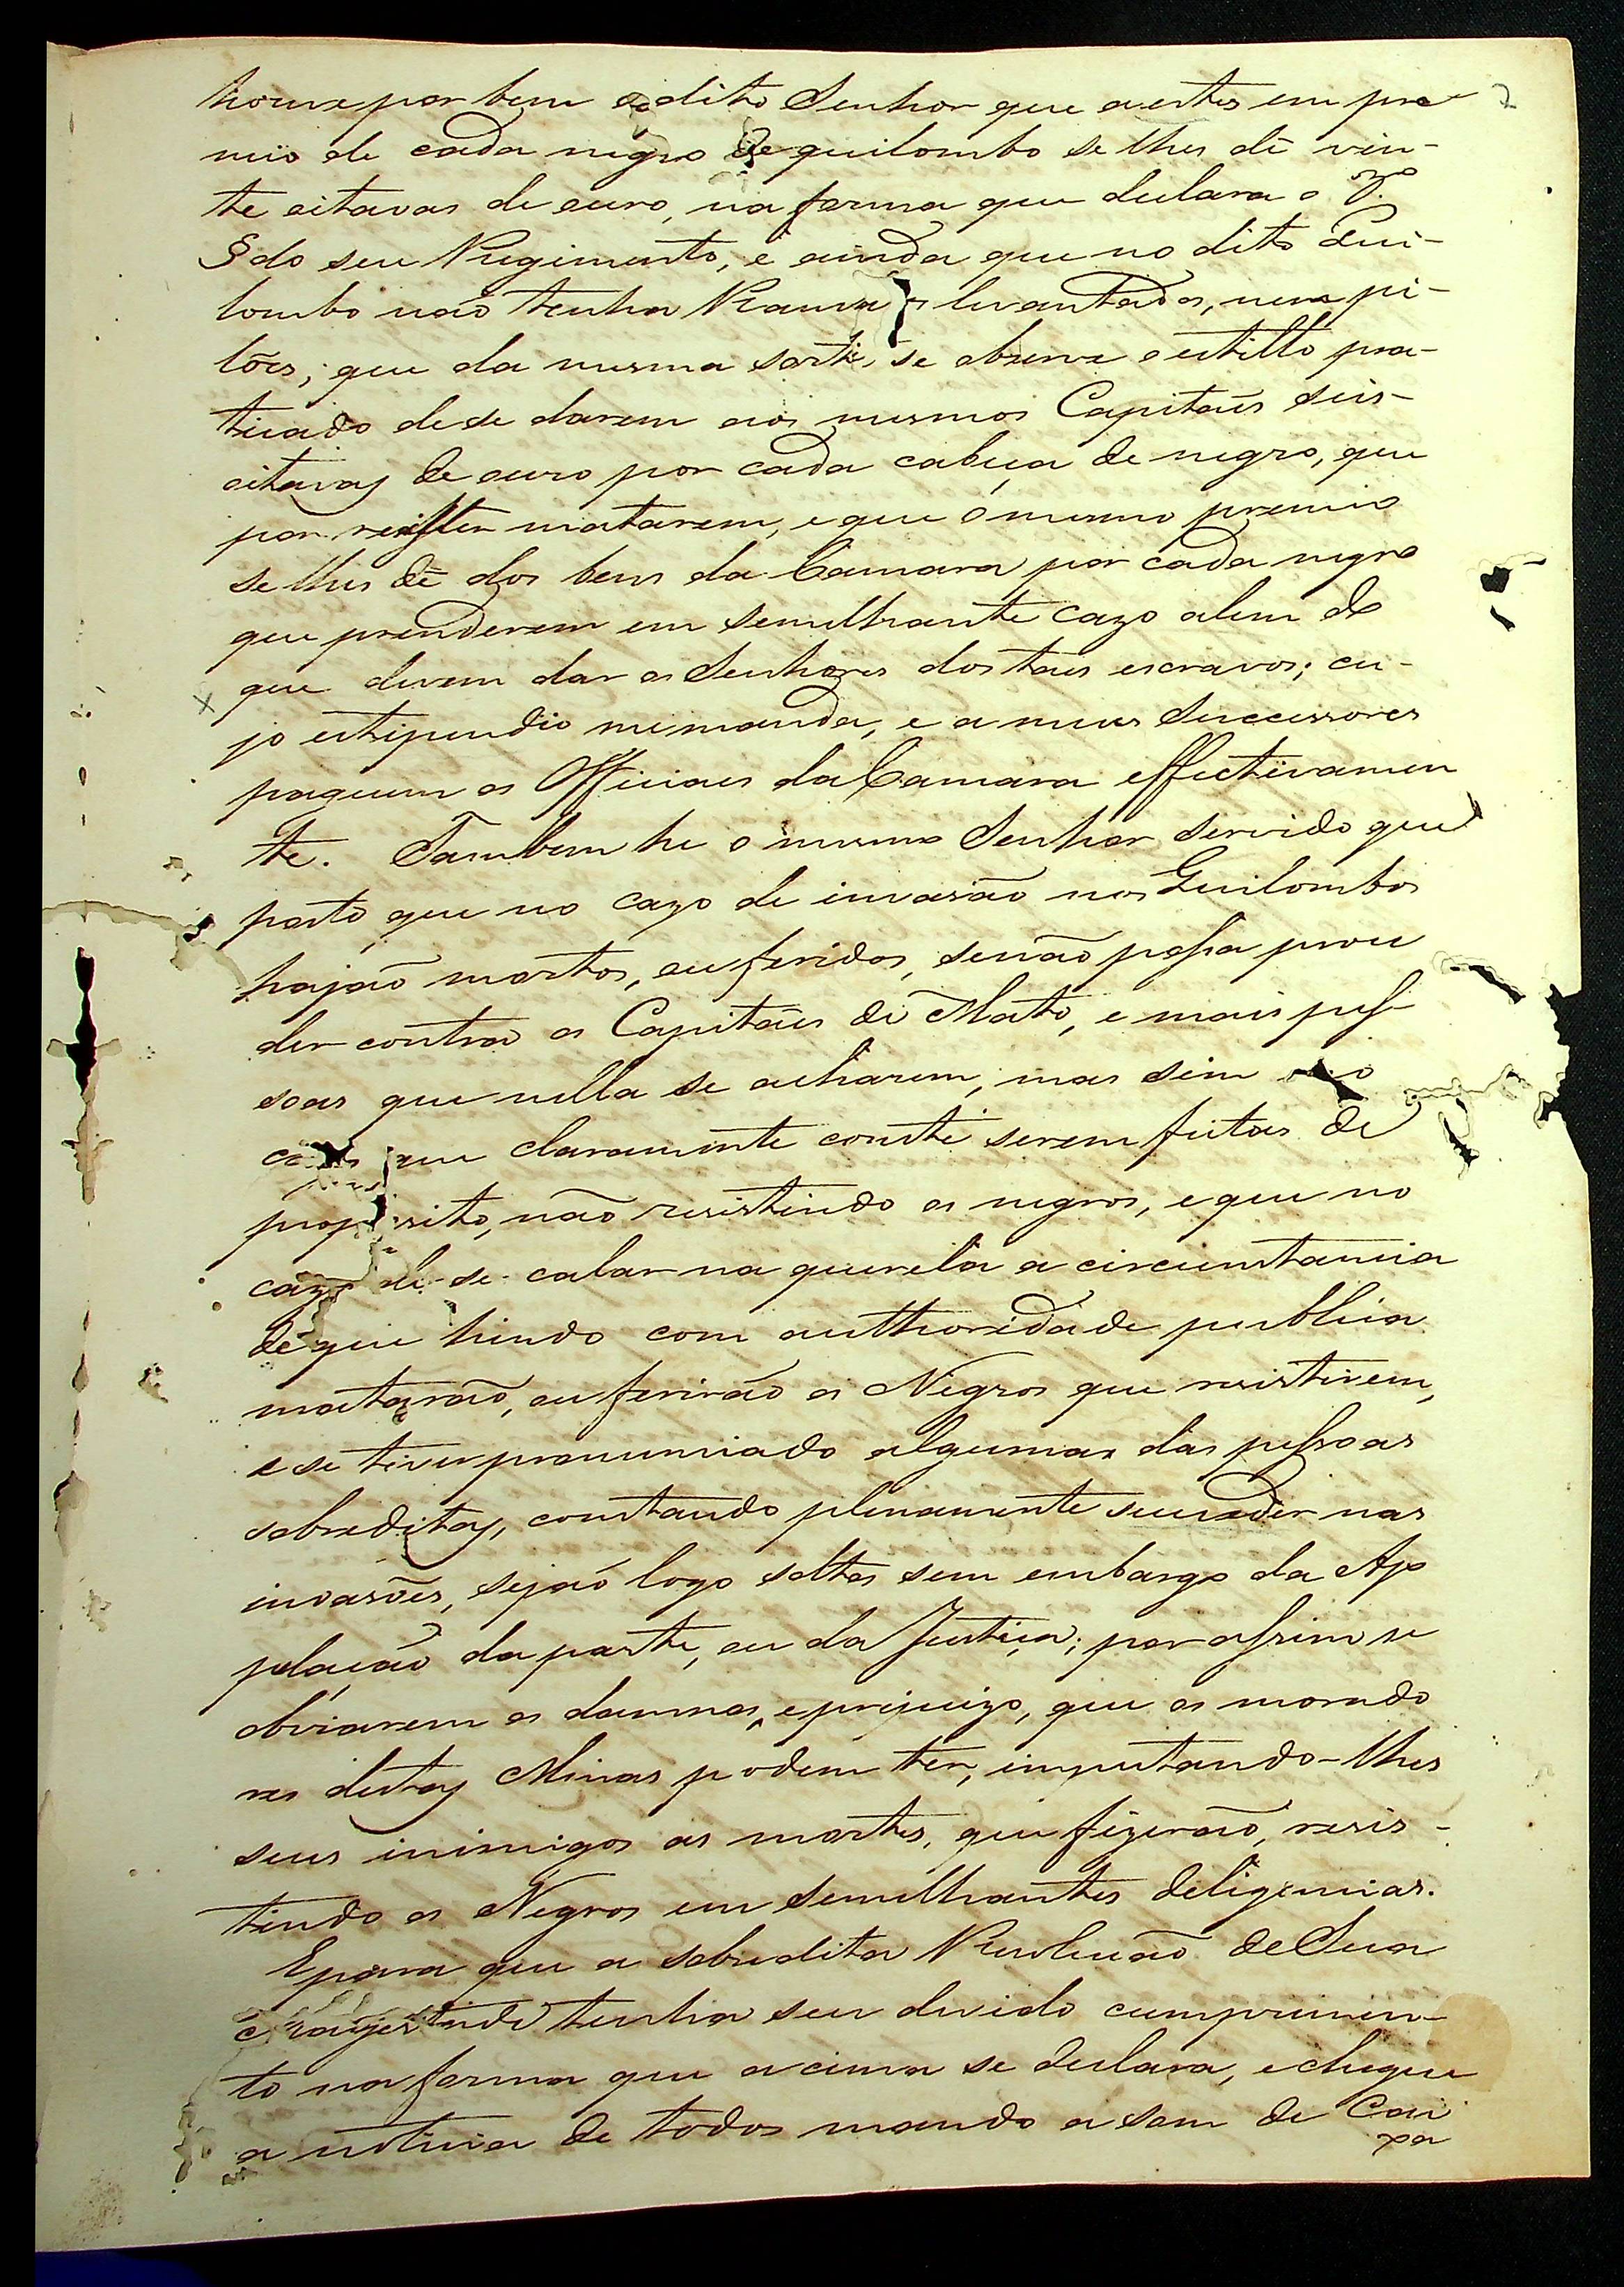 houve por bem o dito Senhor que a estes em pre-
mio de cada negro de quilombo se lhes dê vin-
te oitavas de ouro, na forma que declara o 7.º
§ do seu Regimento, e ainda que no dito Qui-
lombo não tenha Ranxos levantados, nem pi-
lões; que da mesma sorte se observe o estillo pra-
ticado de se darem aos mesmos Capitães seis
oitavas de ouro por cada cabeça de negro, que
por resister matarem, e que o mesmo premio
se lhes dê dos bens da Camara por cada negro
que prenderem em semelhante cazo alem do
que devem dar os Senhores dos taes escravos; cu-
jo estipendio me manda, e a meus Successores
paguem os Officiaes da Camara effectivamen
te. Tambem he o mesmo Senhor servido que
posto que no cazo de invasão nos Quilombos
hajão mortos, ou feridos, se não possa proce
der contra os Capitães do Mato, e mais pes-
soas que nella se acharem; mas sim no
caso que claramente conste serem feitas de
proposito, não resistindo os negros, e que no
cazo de se calar na querela a circunstancia
de que hindo com authoridade publica
matarão, ou ferirão os Negros que resistirem,
e se tiver pronunciado algumas das pessoas
sobreditas, constando plenamente suceder nas
invasões, sejão logo soltos sem embargo da Ap
pelação da parte, ou da Justiça; por assim se
obviarem os damnos, e prejuizo, que os morado
res destas Minas podem ter, imputando-lhes
seus inimigos as mortes, que fizerão, resis-
tindo os Negros em semelhantes deligencias.
E para que a sobredita Resolução de Sua
Magestade tenha seu devido cumprimen-
to na forma que acima se declara, e chegue
a noticia de todos mando a som de Cai
xa